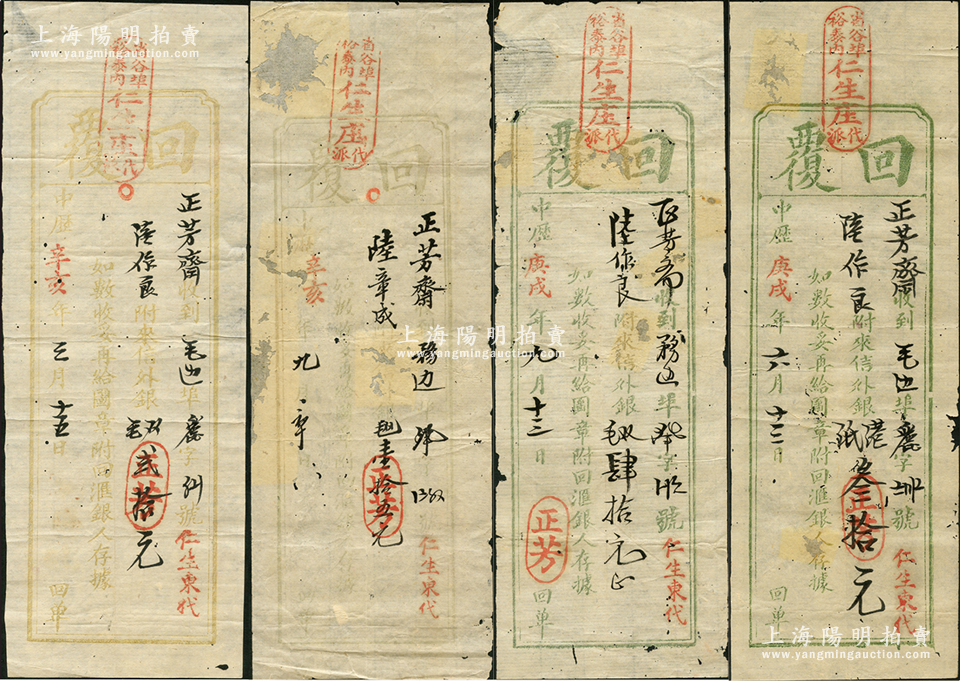 上海陽明拍賣
www.yangmingauction.com
省谷埠
裕泰內
仁生庄
代
回覆
正芳齋收到
埠
字
號
陸作良附來信外銀
弍拾元
如數收妥再給圖章附回滙銀人存據
中歷辛亥年三月十五日
仁生東代
回单
省谷埠
裕泰內
仁生庄
代派
回覆
正芳齋
陸章成
壹拾五元
辛亥年九
仁生東代
省谷埠
裕泰內
仁生庄
代派
回覆
收到
埠
字
號
陸作良附來信外銀
肆拾元正
如數收妥再給圖章附回滙銀人存據
中歷庚戌年九月十三日
正芳
仁生東代
回单
省谷埠
裕泰內
仁生庄
代派
回覆
正芳齋收到
埠
字
號
陸作良附來信外銀
港紙叁拾元
如數收妥再給圖章附回滙銀人存據
中歷庚戌年六月十二日
正芳
仁生東代
回单
上海陽明拍賣
www.yangmingauction.com
上海陽明拍賣
www.yangmingauction.com